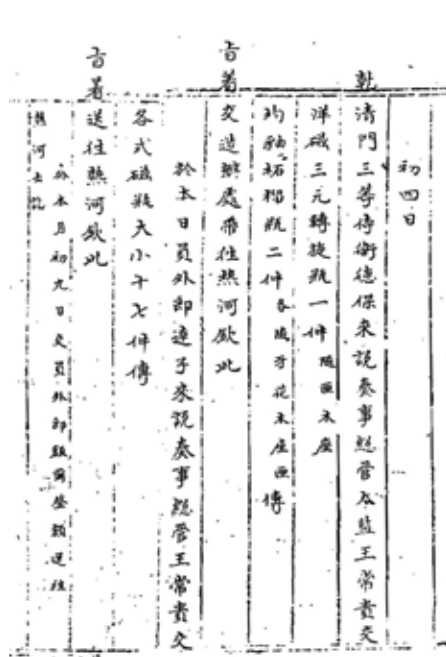 初四日
乾清門三等侍衛德保來說奏事總管太監王常貴交
洋磁三元轉旋瓶一件隨匣木座
均釉石榴瓶二件各隨牙花木座匣傳
旨着交造辦處帶往熱河欽此
於本日員外郎達子來說奏事總管王常貴交
各式磁瓶大小十七件傳
旨着送往熱河欽此
於本月初九日交員外郎 送往
熱河去訖